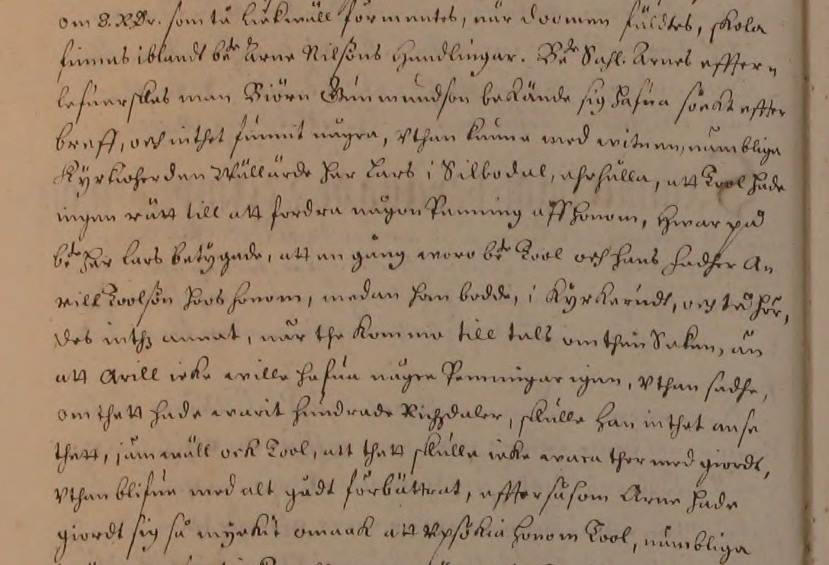 om 8. RDr. som tå lickwäll förmentes, när doomen fäldtes, skola
finnas iblandt bete Arne Nilssons Handlingar. Bete Sahl. Arnes effter
lefuerskes man Biörn Gunmundson bekände sig hafua söckt effter
breff, och inthet funnit någre, Vthan kunne med witnen, nämbliga
Kyrkioherden Wällärde Her Lars i Silbodal, ehrhålla, att Tool hade
ingen rätt till att fordra någon Penning aff honom, Hwar på
bete Her Lars betygade, att en gång woro bete Tool och hans fadher A
rill Toolson hoos honom, medan han bodde, i Kyrkerudt, och tå hör,
des inthz annat, när the kommo till tals om then Saken, än
att Arill icke wille hafua någre Penningar igen, Vthan sadhe,
om thett hade warit hundrade Richzdaler, skulle han inthet anse
thett, iämwäll ock Tool, att thett skulle icke wara ther med giordt,
Vthan blifua med alt gådt förbättrat, effter såsom Arne hade
giordt sig så myckit omaak att Vpsökia honom Tool, nämbliga